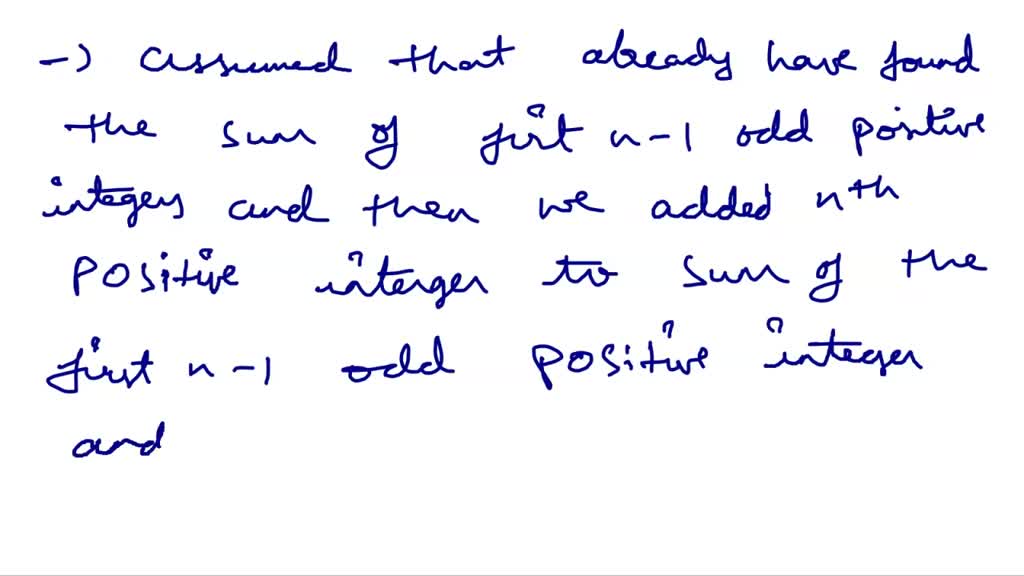 -) assumed that already have found
the sum of first n-1 odd positive
integers and then we added nth
positive interger to sum of the
first n-1 odd positive integer
and